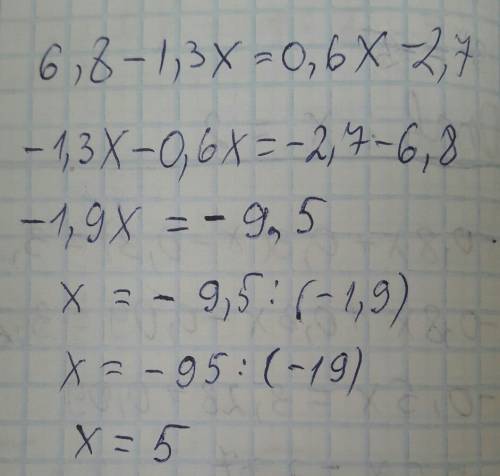 6,8-1,3x=0,6x-2,7
-1,3x-0,6x=-2,7-6,8
-1,9x=-9,5
x=-9,5:(-1,9)
x=-95:(-19)
x=5